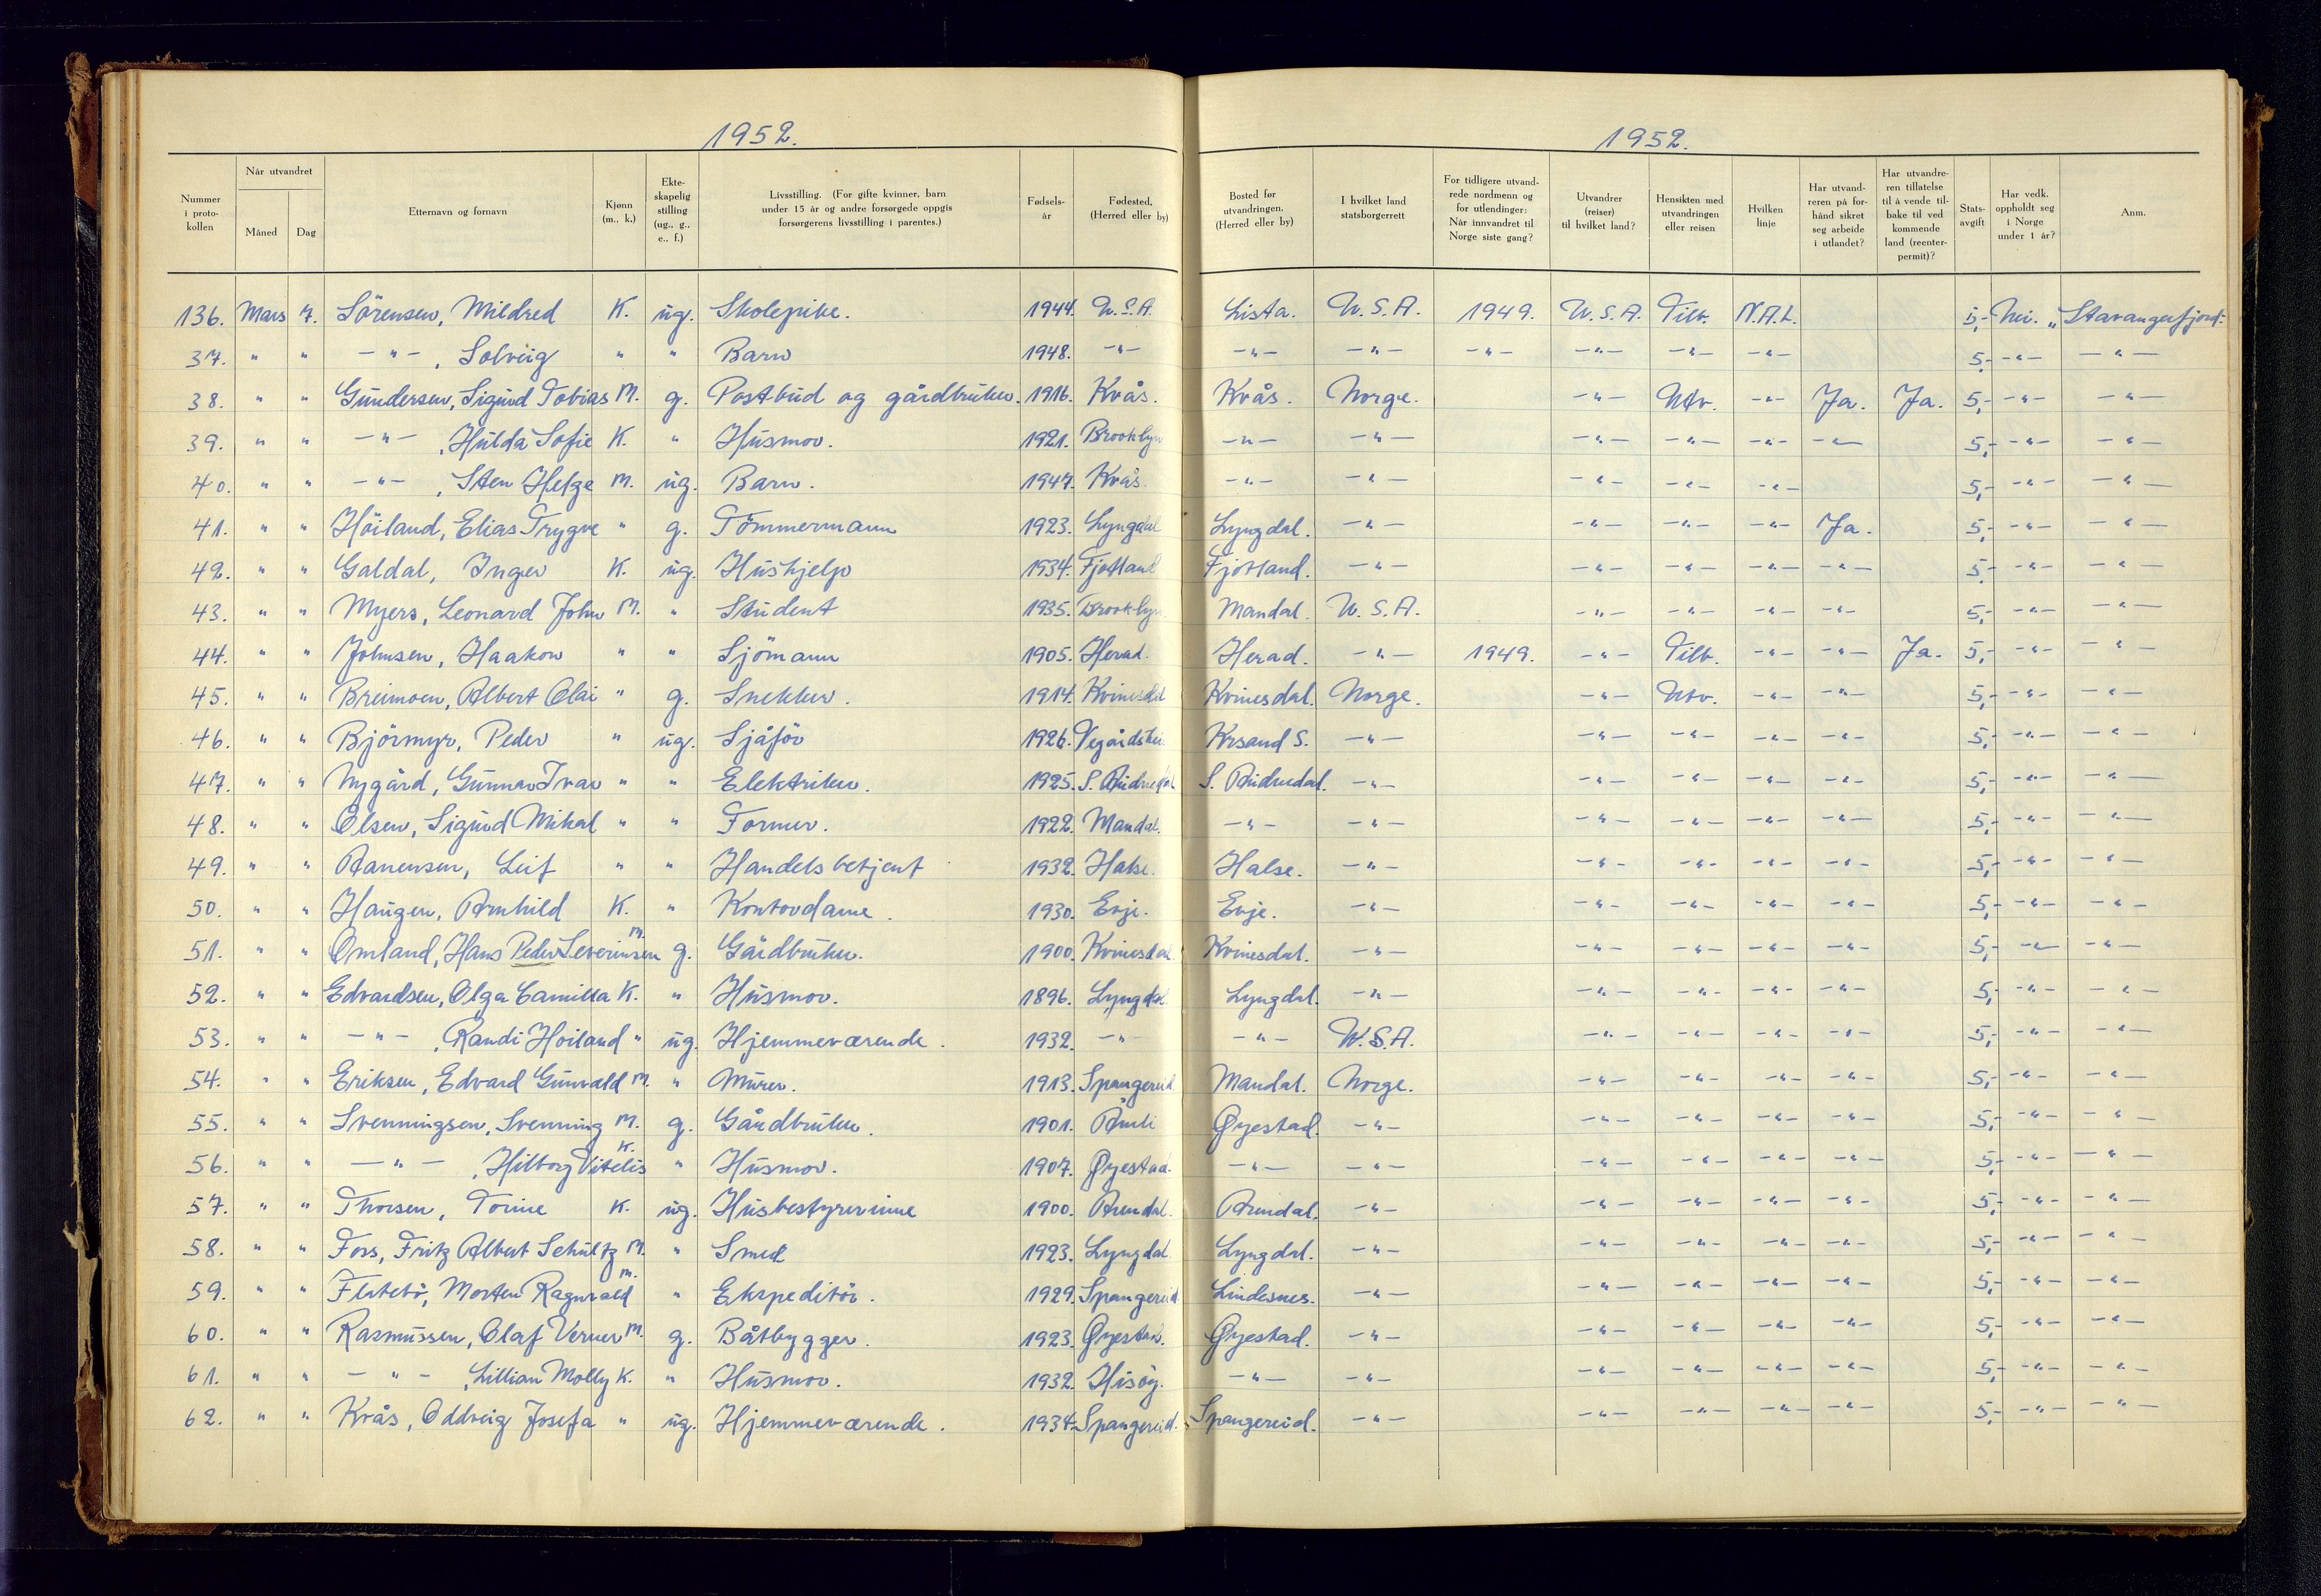 1952.
1952.
Nummer i proto- kollen
Når utvandret
Måned
Dag
Etternavn og fornavn
Kjønn (m., k.)
Ekte- skapelig stilling (ug., g., e., f.)
Livsstilling. (For gifte kvinner, barn under 15 år og andre forsørgede oppgis forsørgerens livsstilling i parentes.)
Fødsels- år
Fødested. (Herred eller by)
Bosted før utvandringen. (Herred eller by)
I hvilket land statsborgerrett
For tidligere utvand- rede nordmenn og for utlendinger: Når innvandret til Norge siste gang?
Utvandrer (reiser) til hvilket land?
Hensikten med utvandringen eller reisen
Hvilken linje
Har utvand- reren på for- hånd sikret seg arbeide i utlandet?
Har utvandre- ren tillatelse til å vende til- bake til ved kommende land (reenter- permit)?
Stats- avgift
Har vedk. oppholdt seg i Norge under 1 år?
Anm.
136. Mars 7. Sörensen, Mildred K. ug. Skolepike. 1944. U.S.A. Lista. U.S.A. 1949. U.S.A. Tilb. N.A.L. 5,- Nei. „Stavangerfjord"
37. " " -"- , Solveig " " Barn 1948. -"- -"- -"- -"- -"- -"- -"- 5,- -"- -"-
38. " " Gundersen, Sigurd Tobias M. g. Postbud og gårdbruker. 1916. Kvås. Kvås. Norge. -"- Utv. -"- Ja. Ja. 5,- -"- -"-
39. " " -"- , Hulda Sofie K. " Husmor. 1921. Brooklyn -"- -"- -"- -"- -"- -"- 5,- -"- -"-
40. " " -"- , Sten Helge M. ug. Barn. 1947. Kvås. -"- -"- -"- -"- -"- 5,- -"- -"-
41. " " Höiland, Elias Trygve " g. Tömmermann 1923. Lyngdal Lyngdal. -"- -"- -"- -"- Ja. 5,- -"- -"-
42. " " Galdal, Inger K. ug. Hushjelp 1934. Fjotland Fjotland. -"- -"- -"- -"- -"- 5,- -"- -"-
43. " " Myers, Leonard John M. " Student 1935. Brooklyn. Mandal. U.S.A. -"- -"- -"- -"- 5,- -"- -"-
44. " " Johnsen, Haakon " " Sjömann 1905. Herad. Herad. -"- 1949. -"- Tilb. -"- -"- Ja. 5,- -"- -"-
45. " " Breimoen, Albert Olai " g. Snekker. 1914. Kvinesdal Kvinesdal. Norge. -"- Utv. -"- -"- 5,- -"- -"-
46. " " Björmyr, Peder " ug. Sjåför 1926. Vegårdshei Krsand S. -"- -"- -"- -"- -"- 5,- -"- -"-
47. " " Nygård, Gunnar Ivar " " Elektriker. 1925. S. Audnedal S. Audnedal. -"- -"- -"- -"- -"- 5,- -"- -"-
48. " " Olsen, Sigurd Mikal " " Former. 1922. Mandal. -"- -"- -"- -"- -"- -"- 5,- -"- -"-
49. " " Aanensen, Leif " " Handelsbetjent 1932. Halse. Halse. -"- -"- -"- -"- -"- 5,- -"- -"-
50. " " Haugen, Arnhild K. " Kontordame. 1930. Evje. Evje. -"- -"- -"- -"- -"- 5,- -"- -"-
51. " " Omland, Hans Peder Severinsen m. g. Gårdbruker. 1900. Kvinesdal. Kvinesdal. -"- -"- -"- -"- -"- 5,- -"- -"-
52. " " Edvardsen, Olga Camilla K. " Husmor. 1896. Lyngdal Lyngdal. -"- -"- -"- -"- -"- 5,- -"- -"-
53. " " -"- , Randi Höiland " ug. Hjemmeværende. 1932. -"- -"- U.S.A. -"- -"- -"- -"- 5,- -"- -"-
54. " " Eriksen, Edvard Gunvald M. " Murer. 1913. Spangereid Mandal. Norge. -"- -"- -"- -"- 5,- -"- -"-
55. " " Svenningsen, Svenning M. g. Gårdbruker. 1901. Åmli Øyestad. -"- -"- -"- -"- -"- 5,- -"- -"-
56. " " -"- , Hilborg Vitelis K. " Husmor. 1907. Øyestad. -"- -"- -"- -"- -"- -"- 5,- -"- -"-
57. " " Thorsen, Torine K. ug. Husbestyrerinne 1900. Arendal. Arendal. -"- -"- -"- -"- -"- 5,- -"- -"-
58. " " Foss, Fritz Albert Schultz M. " Smed 1923. Lyngdal Lyngdal. -"- -"- -"- -"- -"- 5,- -"- -"-
59. " " Flatebö, Morten Ragnvald m. " Ekspeditör. 1929. Spangereid Lindesnes. -"- -"- -"- -"- -"- 5,- -"- -"-
60. " " Rasmussen, Olaf Verner M. g. Båtbygger. 1923. Øyestad. Øyestad. -"- -"- -"- -"- -"- 5,- -"- -"-
61. " " -"- , Lillian Molly K. " Husmor. 1932. Hisöy. -"- -"- -"- -"- -"- -"- 5,- -"- -"-
62. " " Kvås, Oddveig Josefa " ug. Hjemmeværende. 1934. Spangereid. Spangereid. -"- -"- -"- -"- -"- 5,- -"- -"-